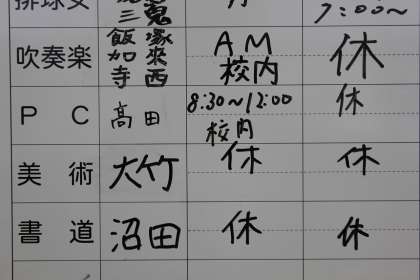 排球女
三鬼 7:00〜
吹奏楽 飯塚 AM 休
加来 校内
寺西
PC 高田 8:30〜12:00 休
校内
美術 大竹 休 休
書道 沼田 休 休